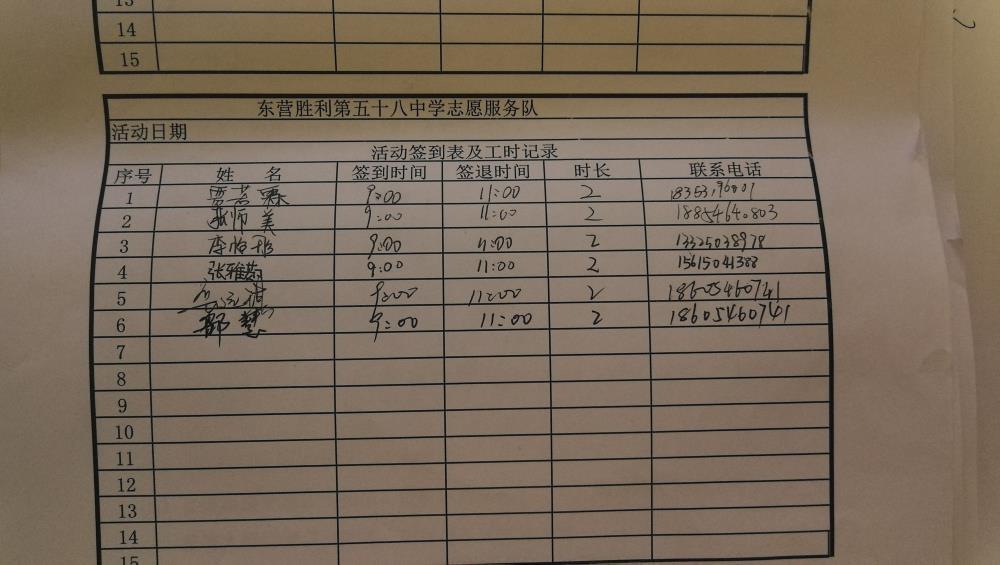 14
15
东营胜利第五十八中学志愿服务队
活动日期
活动签到表及工时记录
序号 姓 名 签到时间 签退时间 时长 联系电话
1 9:00 11:00 2
2 张师美 9:00 11:00 2 18854640803
3 9:00 11:00 2 13325038978
4 张雅茹 9:00 11:00 2 15615041388
5 9:00 11:00 2 18605460741
6 郭慧 9:00 11:00 2 18605460741
7
8
9
10
11
12
13
14
15